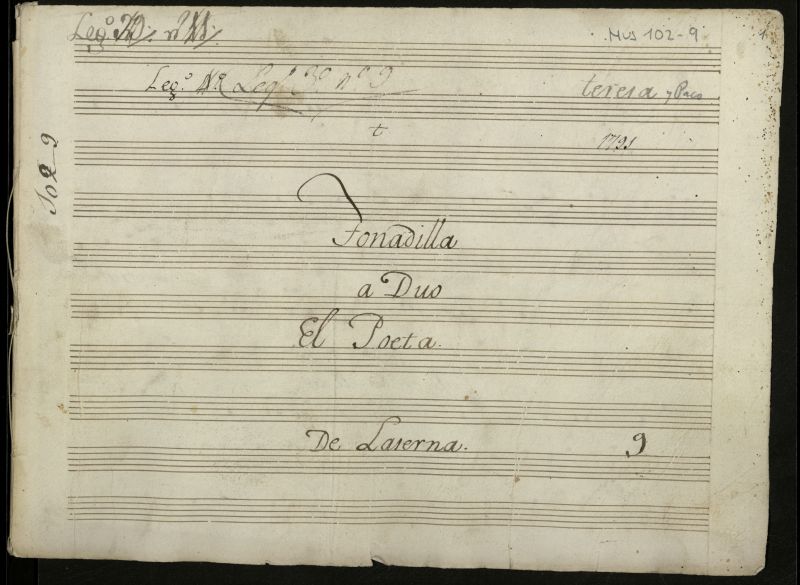 Leg.º
Mus 102-9
1
Leg.º Leg.º 3º nº 9
teresa y Paco
t
1791
Tonadilla
a Duo
El Poeta.
De Laserna.
9